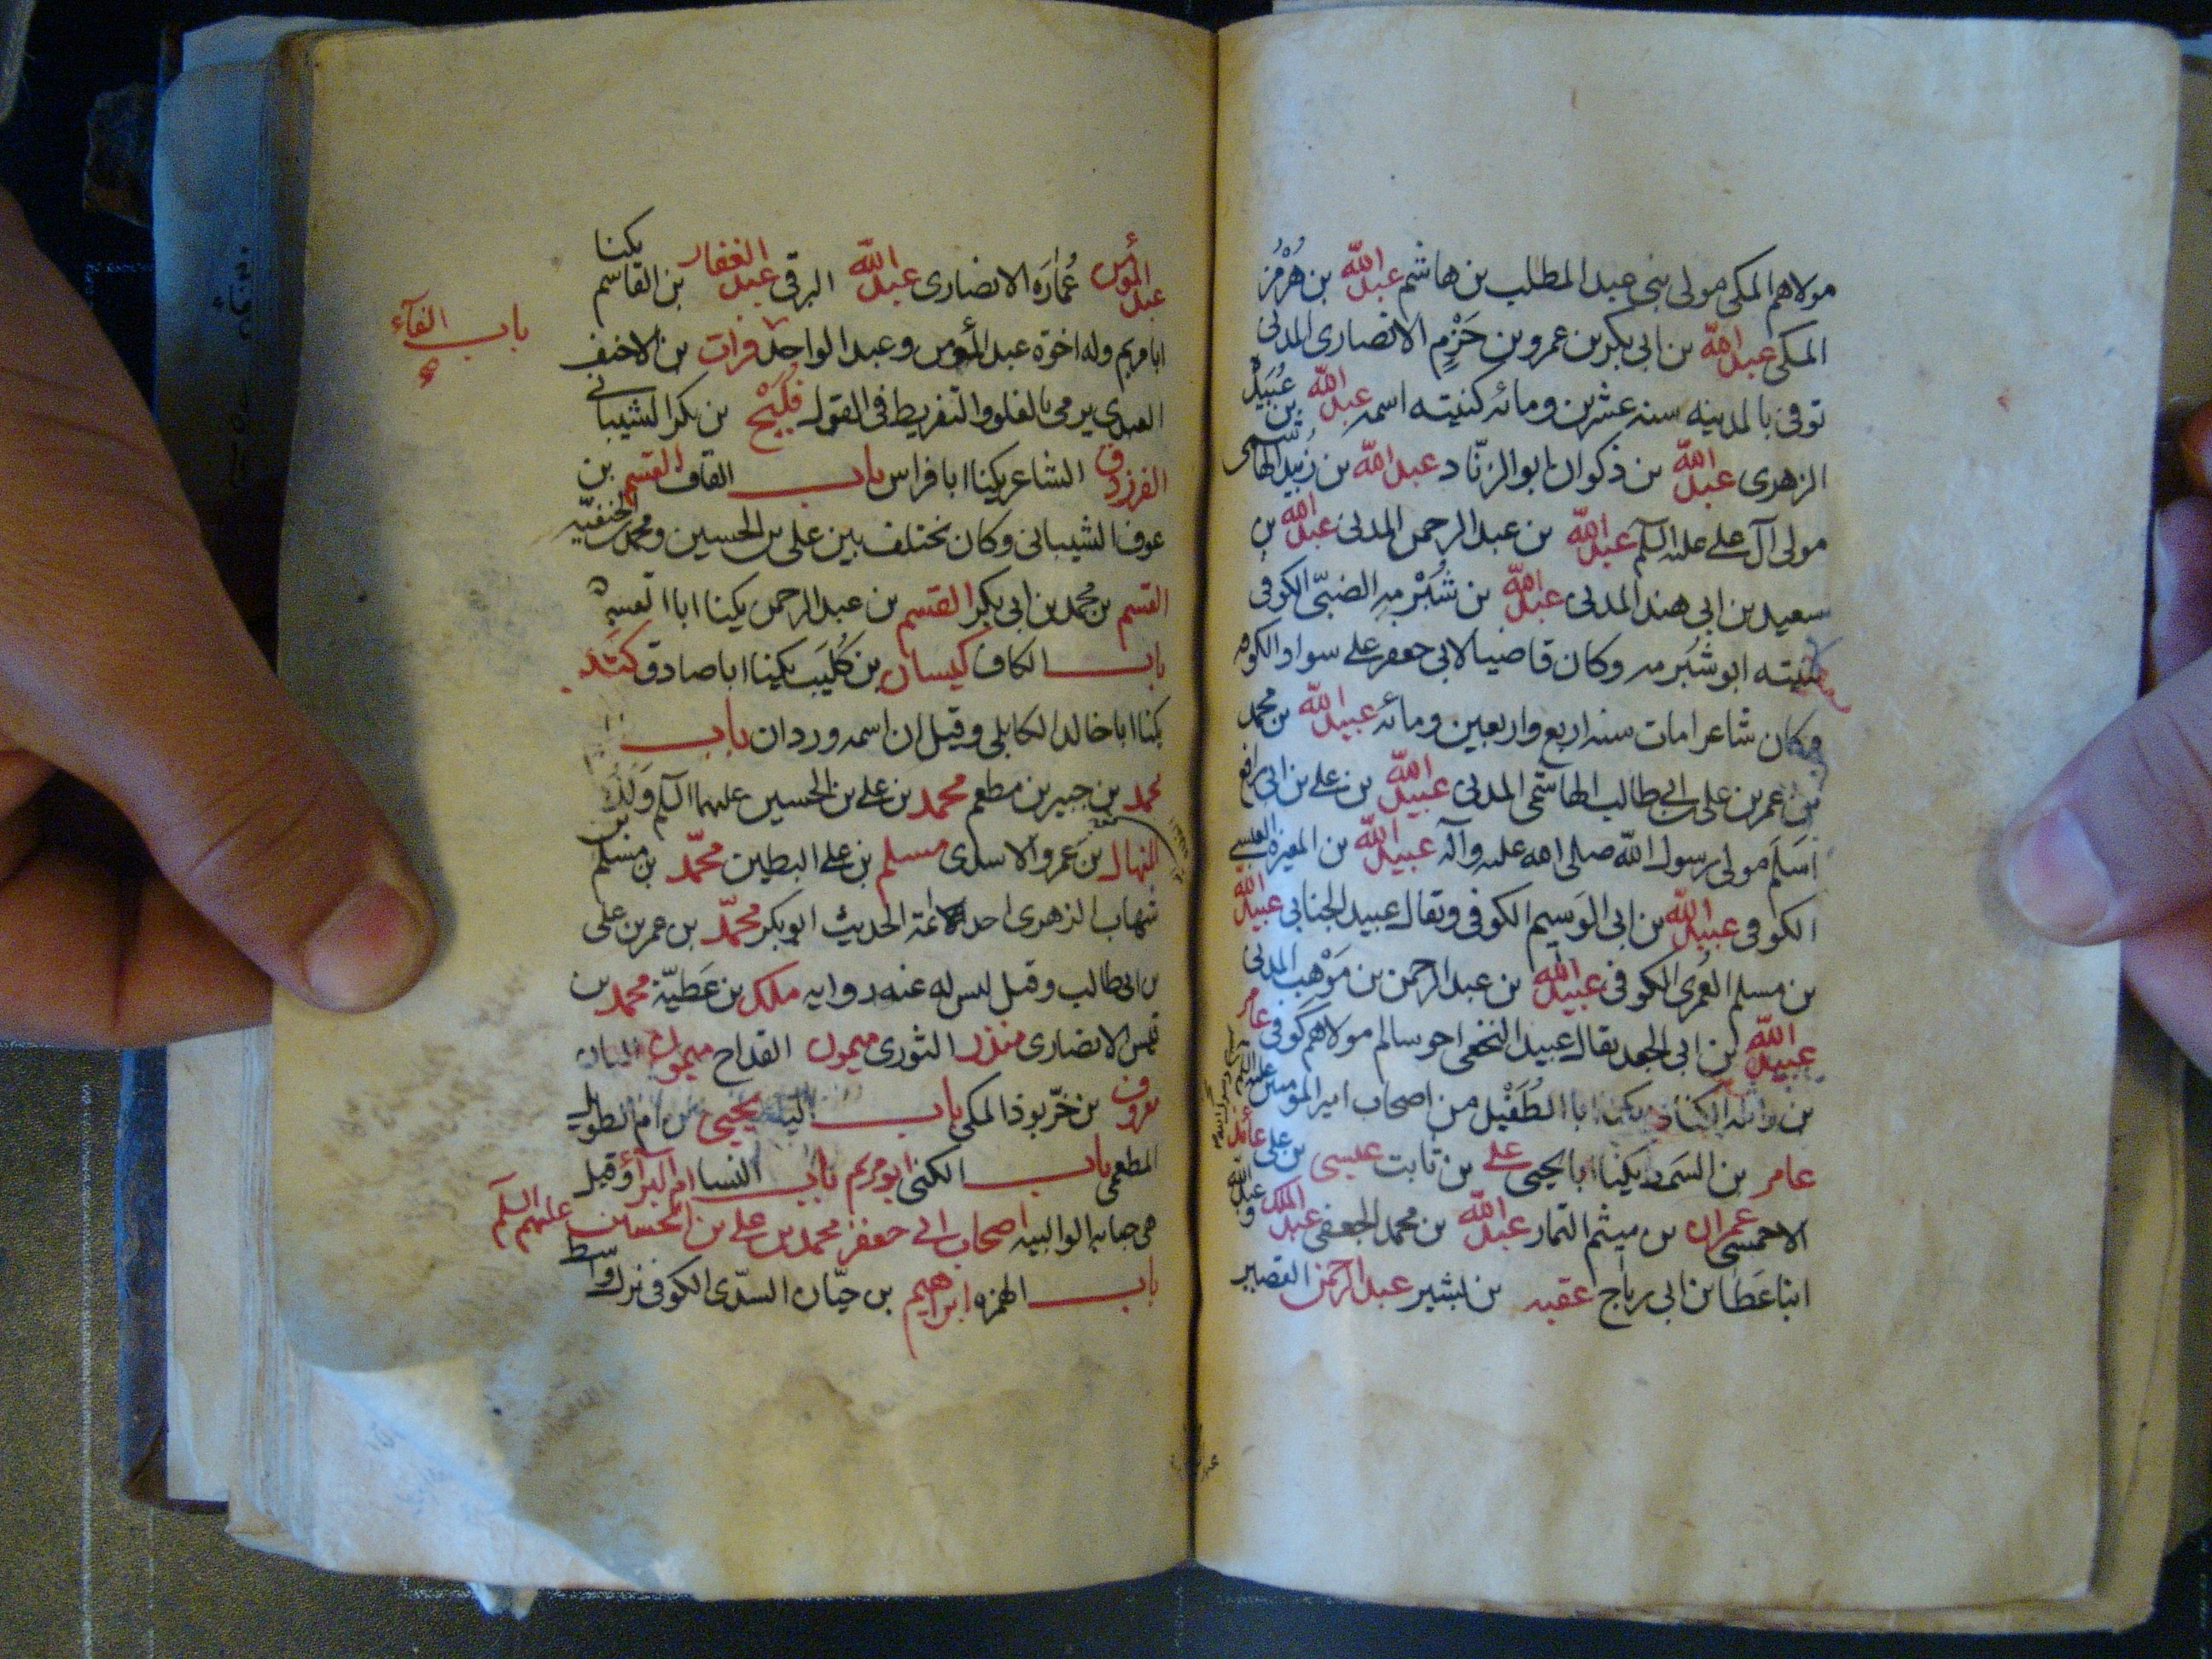 مولاهم المكي مولى بني عبد المطلب بن هاشم عبد الله بن هُرْمُز
المكي عبد الله بن ابي بكر بن عمرو بن حَزْم الانصارى المدني
توفى بالمدينه سنه عشرين ومائه كنيته اسمه عبد الله بن عُبَيْد
الزهرى عبد الله بن ذكوان ابو الزنّاد عبد الله بن زُبيد الهاشمى
مولى آل على عليه السلم عبد الله بن عبد الرحمن المدنى عبد الله بن
سعيد بن ابي هند المدنى عبد الله بن شُبْرمه الضبّى الكوفى
كنيته ابو شُبرمه وكان قاضيا لابي جعفر على سواد الكوفه
وكان شاعرا مات سنه اربع واربعين ومائه عبيد الله بن محمد
بن عمر بن على بن ابي طالب الهاشمى المدنى عبيد الله بن على بن ابي رافع
اسلم مولى رسول الله صلى الله عليه وآله عبيد الله بن المغيرة العبسى
الكوفى عبيد الله بن ابي الوَسيم الكوفى ويقال عبيد الجنابي عبيد الله
بن مسلم العُمرى الكوفى عبيد الله بن عبد الرحمن بن مَوْهب المدنى
عبيد الله بن ابي الجعد يقال عبيد النخعى اخو سالم مولاهم كوفى عامر
بن واثله الكنانى يكنا ابا الطُفَيْل من اصحاب امير المومنين عليه السلم
عامر بن السمط يكنا ابا يحيى على بن ثابت عيسى بن على عائذ
الاحمسى عمران بن ميثم التمار عبد الله بن محمد الجعفى عبد الملك و عبد الله
ابنا عَطَا بن ابي رباح عقبه بن بشير عبد الرحمن القصير
عبد المؤمن عُمارَه الانصارى عبد الله البرقى عبد الغفار بن القاسم يكنا
ابا مريم وله اخوة عبد المؤمن وعبد الواحد فرات بن الاحنف
باب الفآء
العبدى يرمى بالغلو والتفريط فى القول فُلَيْح بن بكر الشيبانى
الفرزدق الشاعر يكنا ابا فراس باب القاف القسم بن
عوف الشيبانى وكان يختلف بين على بن الحسين ومحمد بن الحنفيّه
القسم بن محمد بن ابي بكر القسم بن عبد الرحمن يكنا ابا القسم
باب الكاف كيسان بن كُلَيب يكنا ابا صادق كنكر
يكنا ابا خالد الكابلى وقيل ان اسمه وردان باب
محمد بن جبير بن مطعم محمد بن على بن الحسين عليهما السلم وَلَدُه
المنهال بن عَمرو الاسدى مسلم بن على البطين محمّد بن مسلم بن
شهاب الزهرى احد الائمة الحديث ابو بكر محمّد بن عمر بن على
بن ابى طالب وقيل ليس له عنه روايه ملك بن عَطيّة محمد بن
قيس الانصارى منذر الثورى ميمون القداح ميمون البان
معروف بن خرّبوذ المكى باب اليا يحيى بن ام الطويل
المطعمى باب الكنى ابو مريم باب النسا ام البرآء وقيل
هى حبابه الوالبيه اصحاب ابي جعفر محمد بن على بن الحسين عليهم السلم
باب الهمزه ابراهيم بن حيّان السدّى الكوفى نزل واسط